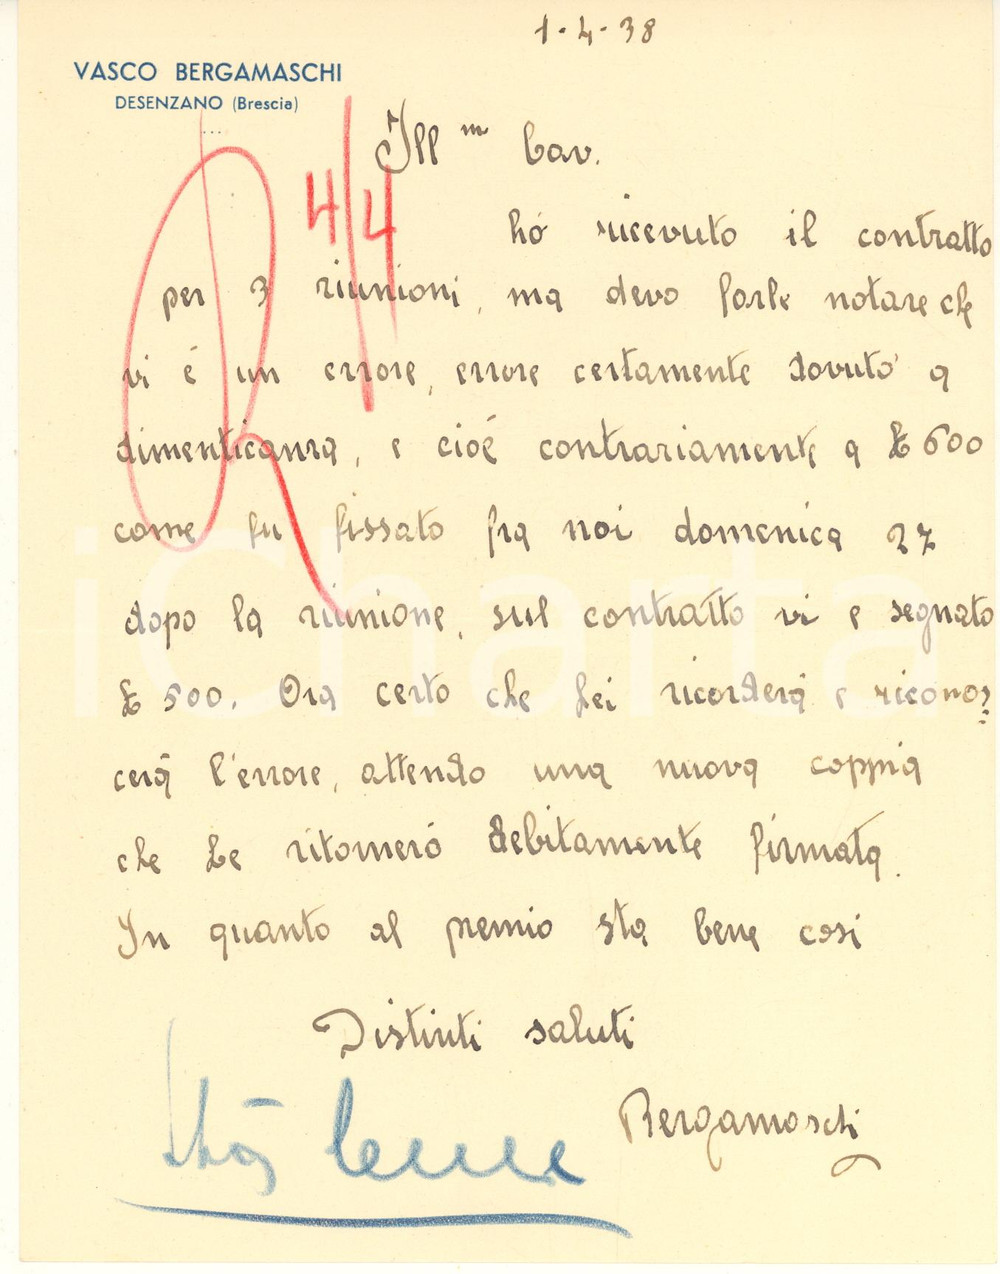 1-4-38
VASCO BERGAMASCHI
DESENZANO (Brescia)
Ill mo Cav.
R 4/4
hó ricevuto il contratto
per 3 riunioni, ma devo farle notare che
vi é un errore, errore certamente dovuto a
dimenticanza, e cioé contrariamente a £ 600
come fu fissato fra noi domenica 27
dopo la riunione, sul contratto vi e segnato
£ 500. Ora certo che Lei ricorderá e ricono=
cerá l'errore, attendo una nuova coppia
che Le ritorneró debitamente firmata.
In quanto al premio sta bene cosi
Distinti saluti
Bergamaschi
Sta bene
iCharta